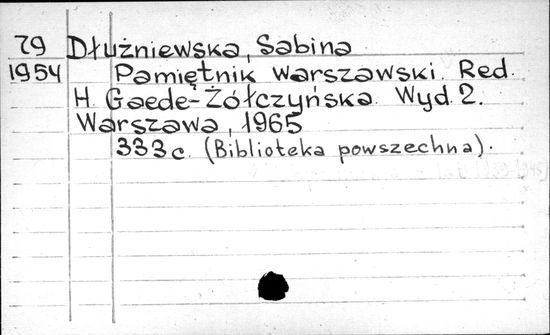 79 Dłużniewska, Sabina
1954 Pamiętnik warszawski. Red.
H. Gaede-Żółczyńska. Wyd. 2.
Warszawa, 1965
333 c. (Biblioteka powszechna).